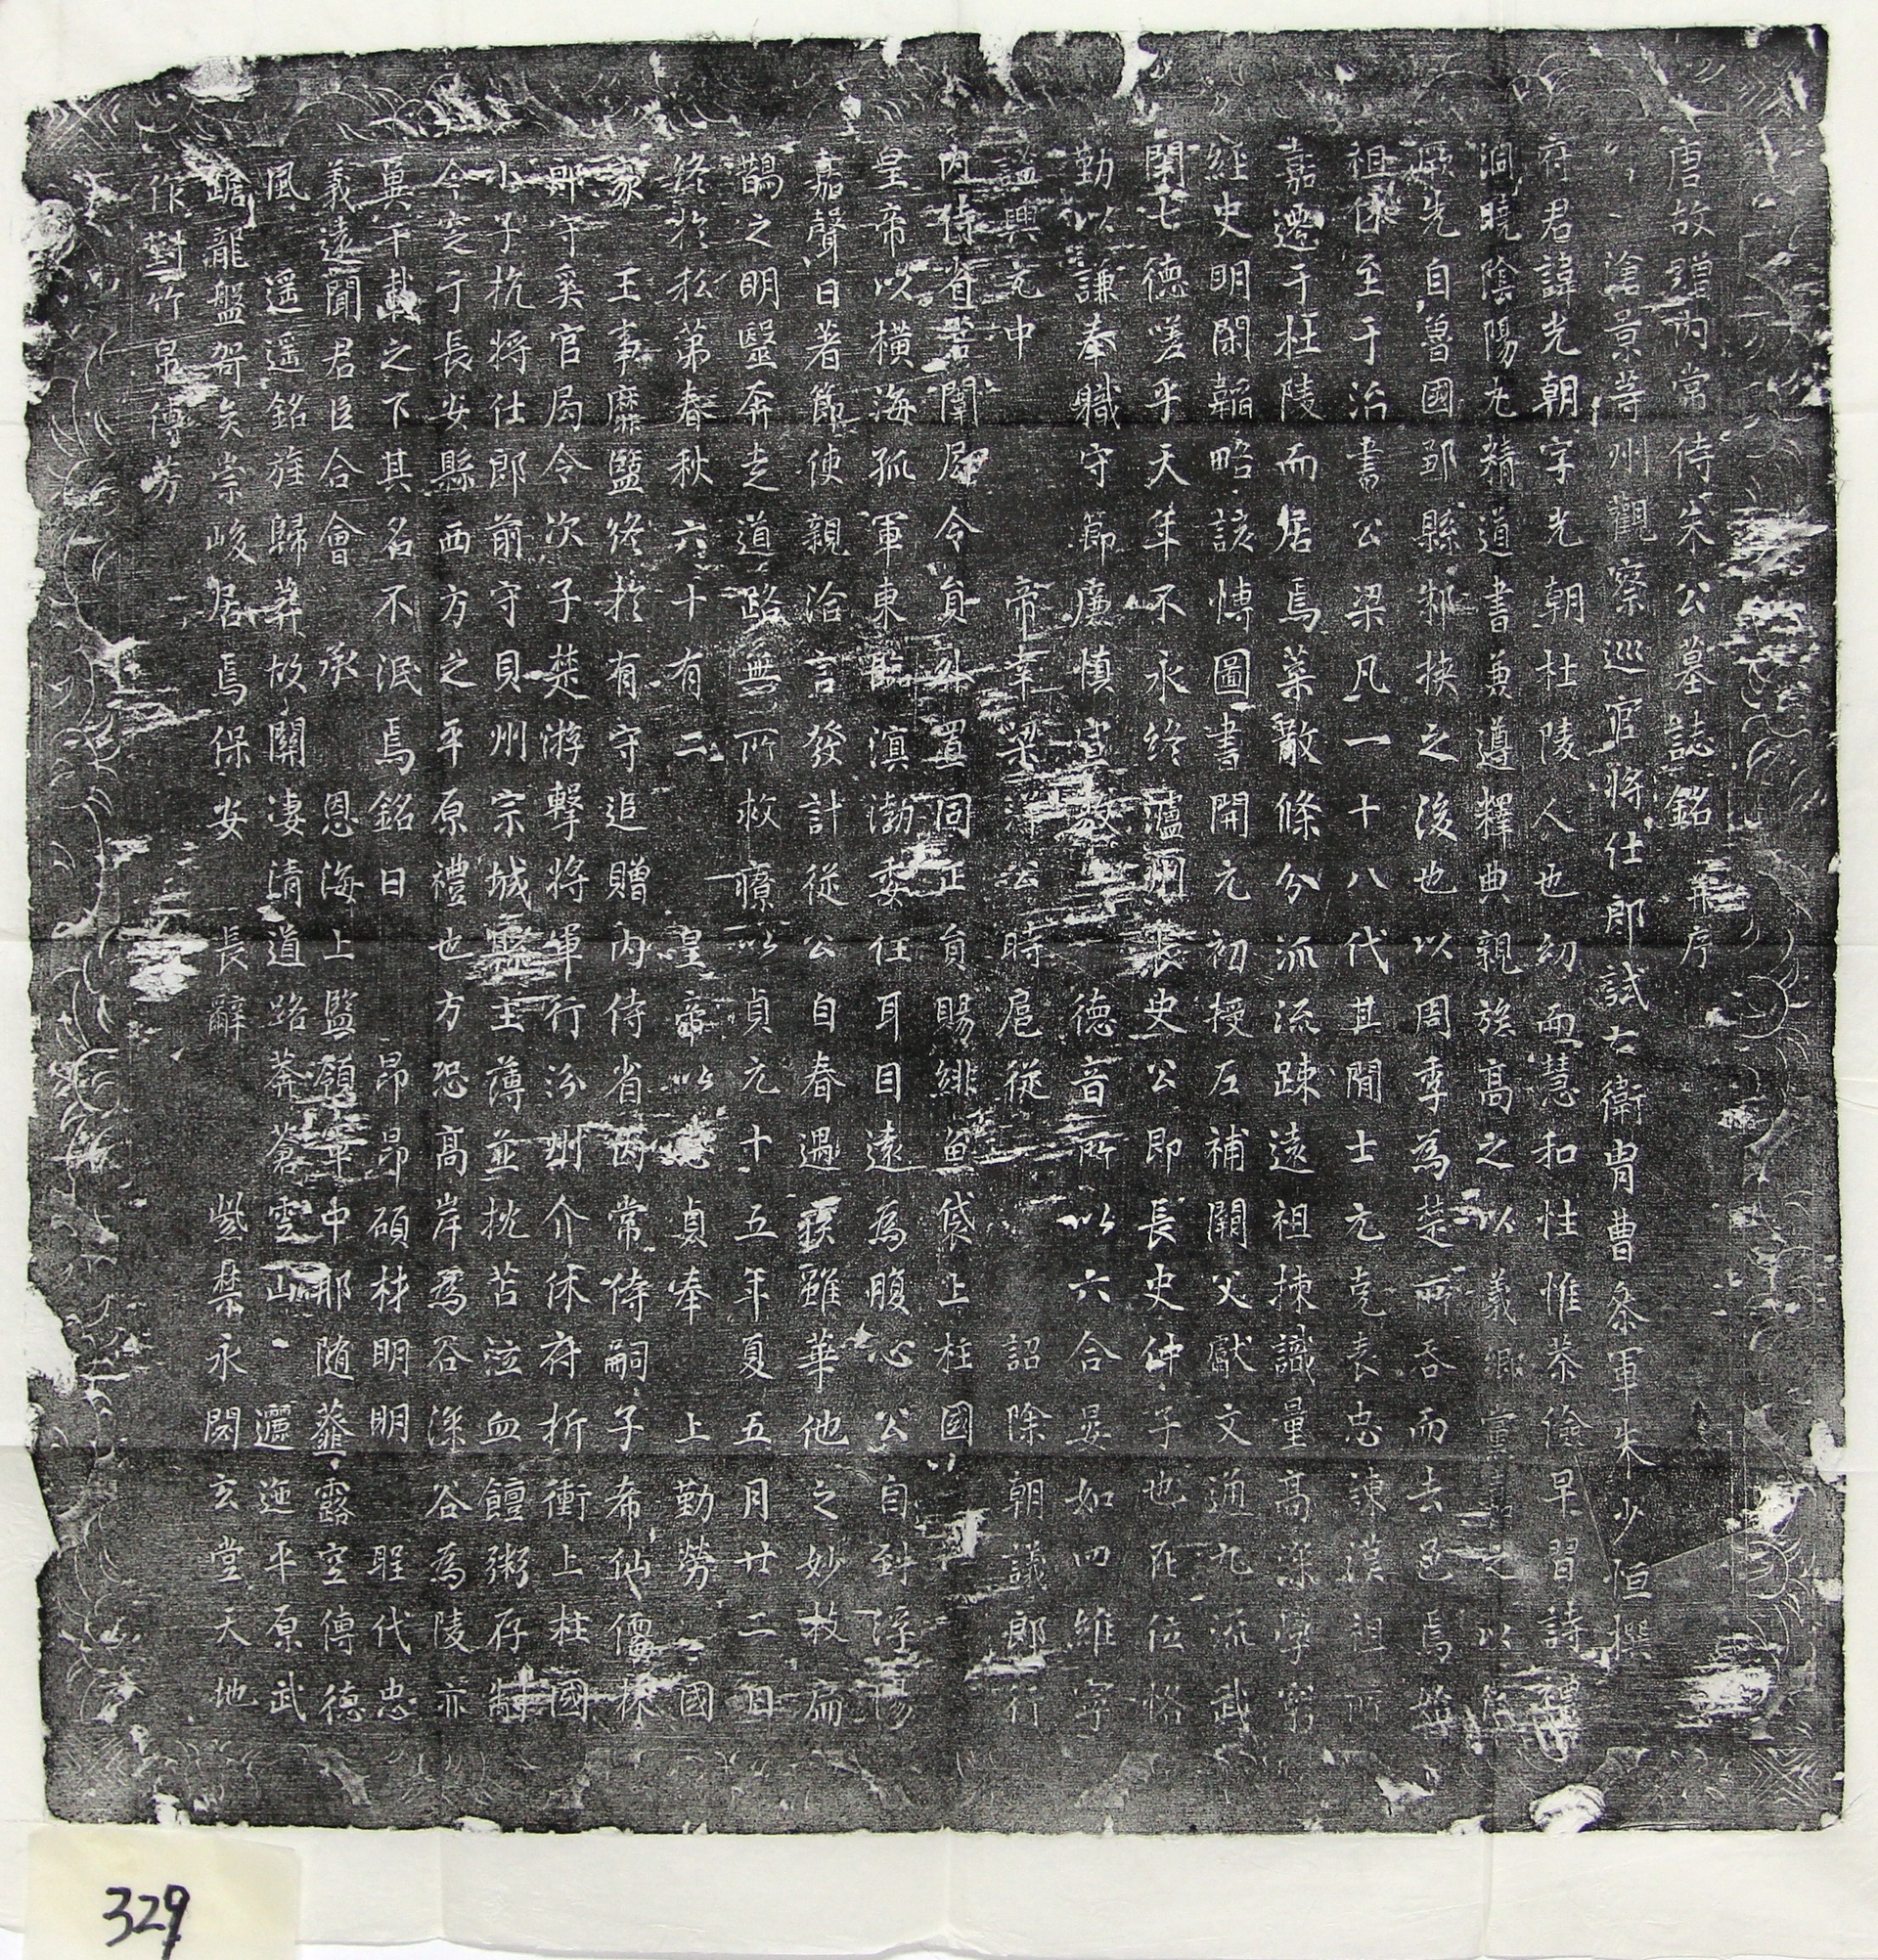 唐故贈內常侍朱公墓誌銘并序
滄景等州觀察巡官將仕郎試右衛冑曹參軍朱少恒撰
府君諱光朝字光朝杜陵人也幼而慧和性惟恭儉早習詩禮
洞曉陰陽尤精道書兼遵釋典親族高之以義鄉黨之以
厥先自魯國邾縣邾挾之後也以周季為楚所吞而去邑焉
祖伯至于治書公梁凡一十八代其間士元克表忠諫漢祖所
嘉遷于杜陵而居焉葉散條分派流疎遠祖揀識量高深學窮
經史明閑韜略該博圖書開元初授左補闕父獻文通九流武
閑七德嗟乎天年不永終瀘州長史公即長史仲子也在位恪
勤以謙奉職守節廉慎德音所以六合晏如四維寧
謐興元中帝幸梁洋公時扈從詔除朝議郎行
內侍省宮闈局令員外置同正員賜緋魚袋上柱國
皇帝以橫海孤軍東臨滇渤委任耳目遠為腹心公自到浮陽
嘉聲日著節使親洽言發計從公自春遇疾雖華他之妙救扁
鵲之明毉奔走道路無所救療以貞元十五年夏五月廿二日
終於私第春秋六十有二皇帝以公貞奉上勤勞國
家王事靡盬終於有守追贈內侍省內常侍嗣子希仙儒林
郎守奚官局令次子楚游擊將軍行汾州介休府折衝上柱國
小子抗將仕郎前守貝州宗城縣主薄並扰苫泣血饘粥存制
今窆于長安縣西方之平原禮也方恐高岸為谷深谷為陵亦
冀千載之下其名不泯焉銘曰昂昂碩材明明聖代忠
義遠聞君臣合會承恩海上監領軍中那隨薤露空傳德
風遥遥銘旌歸葬故關凄清道路莽蒼雲山邐迤平原武
踞龍盤哿矣崇峻居焉保安長辭紫禁永閟玄堂天地
作對竹帛傳芳
329